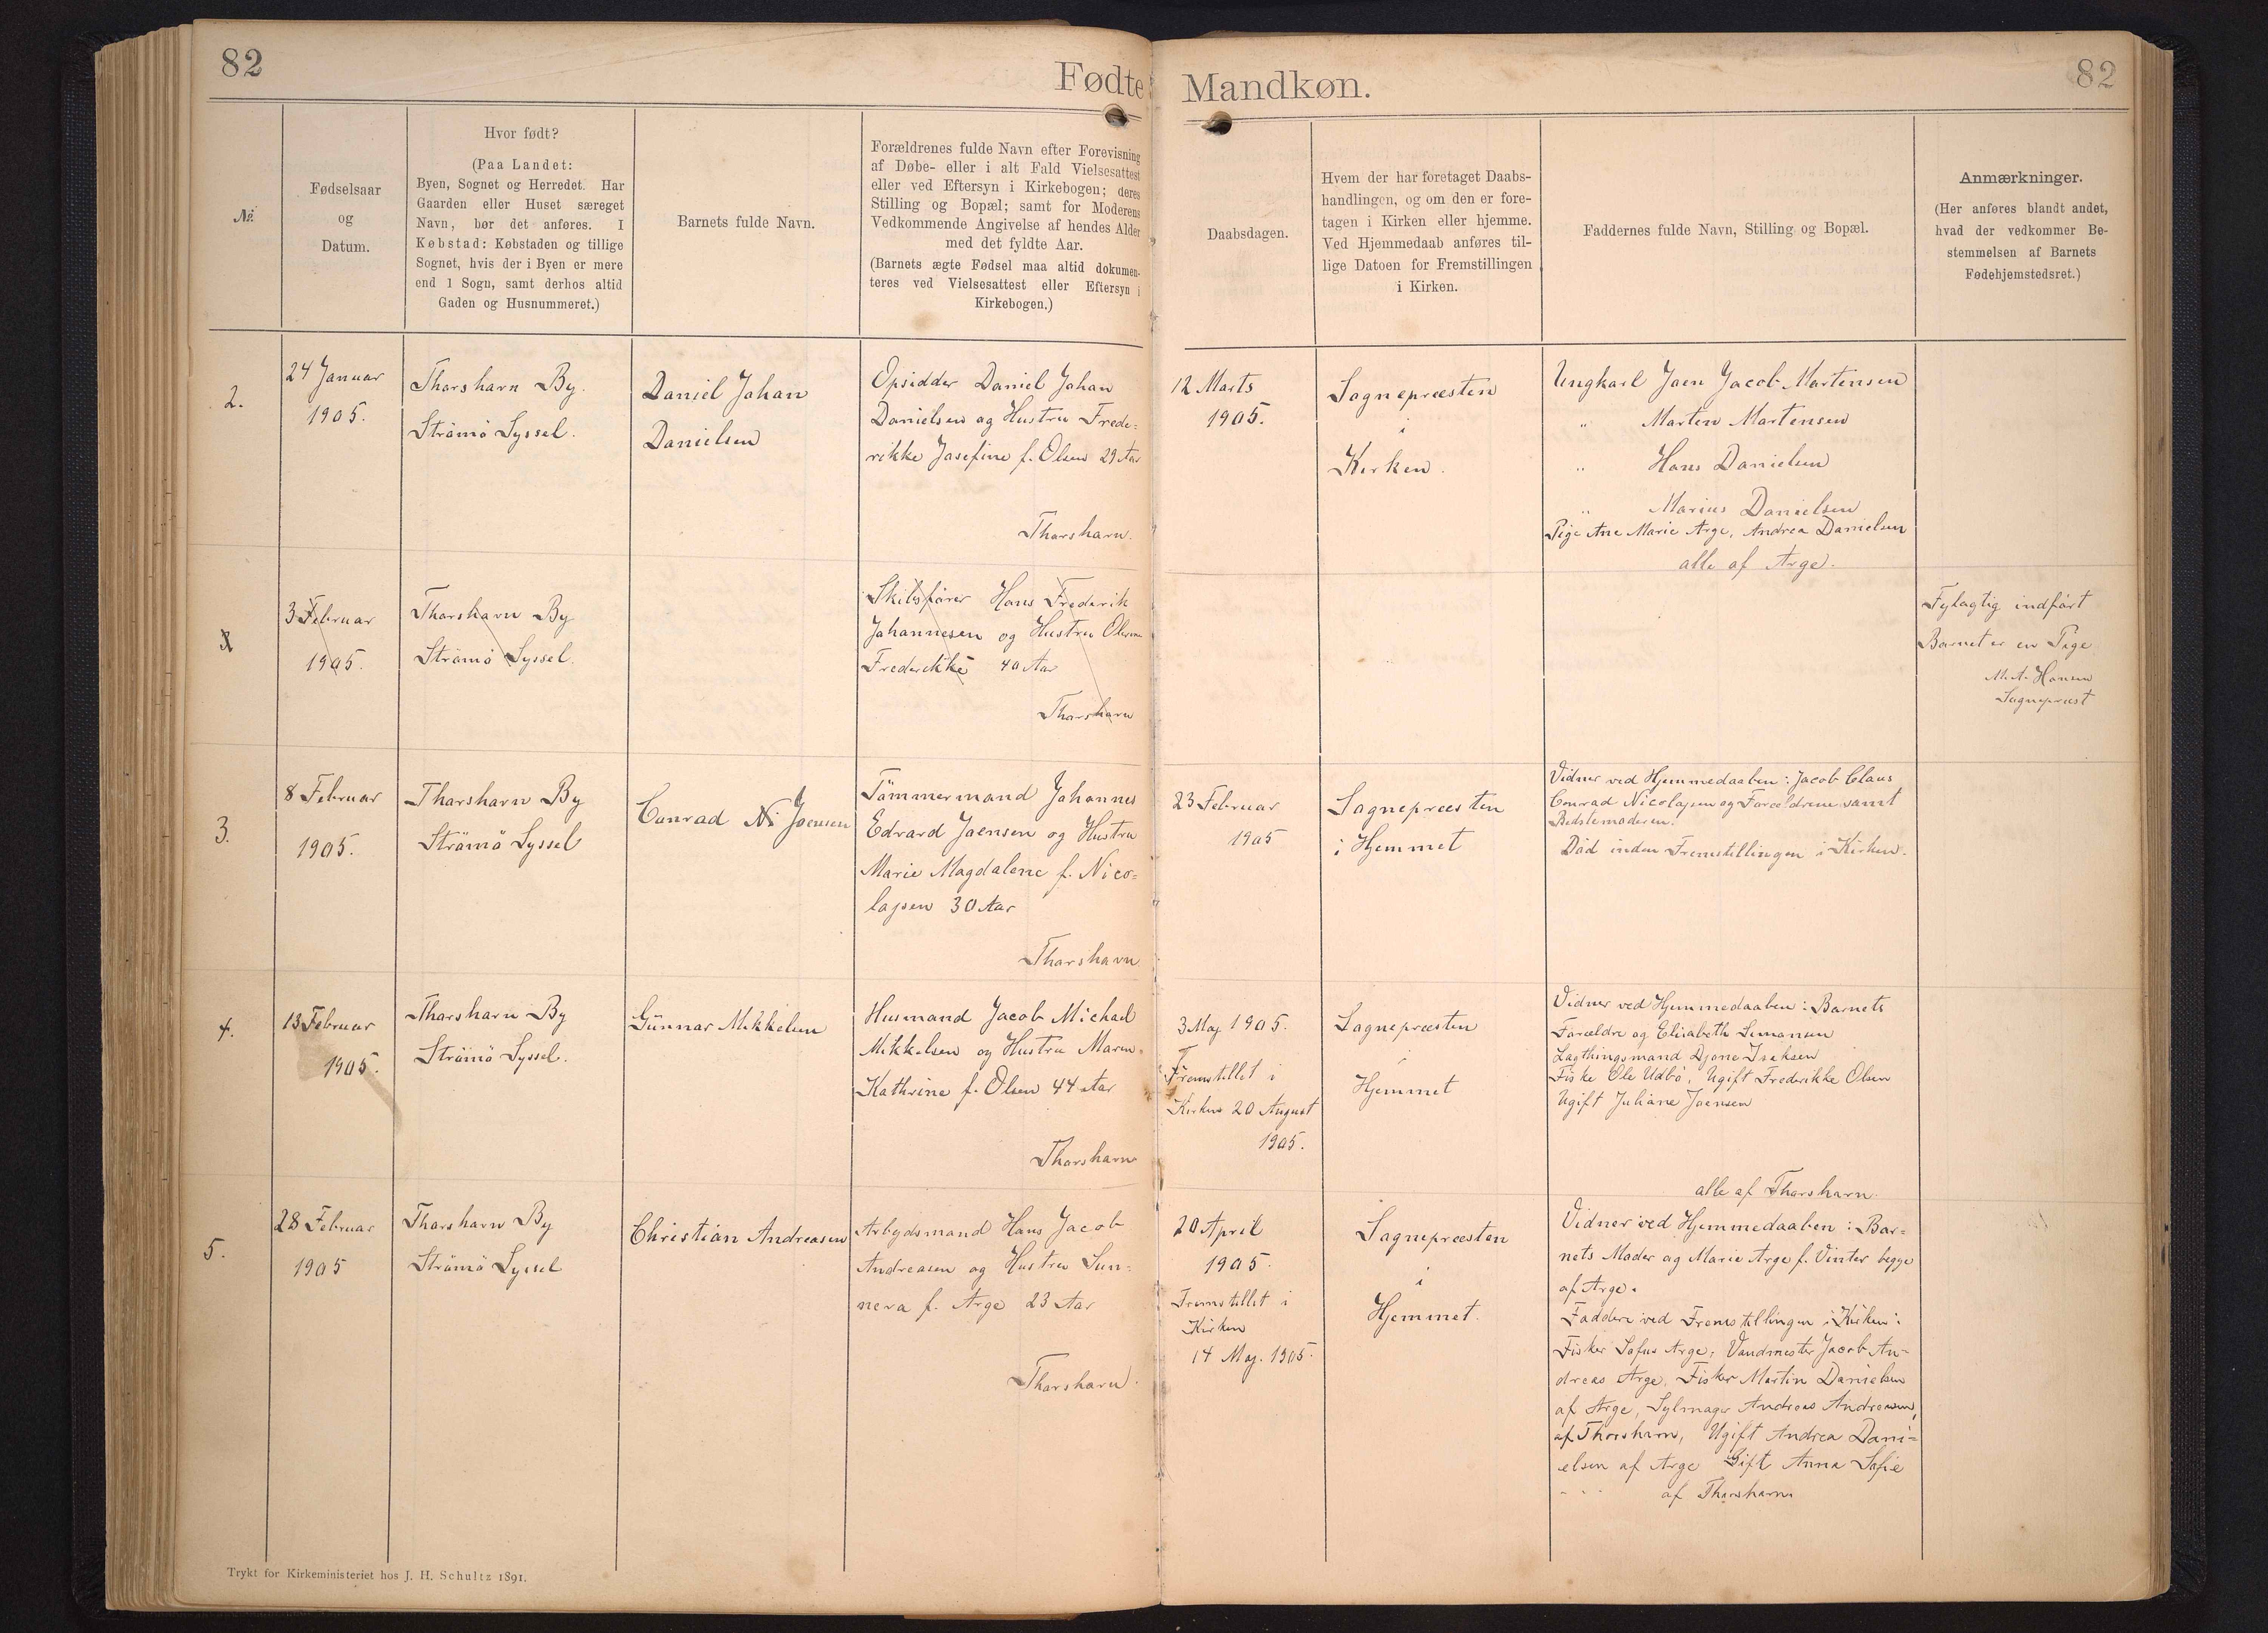 82
Fødte
Mandkøn.
82
№.
Fødselsaar
og
Datum.
Hvor født?
(Paa Landet:
Byen, Sognet og Herredet. Har
Gaarden eller Huset særeget
Navn, bør det anføres. I
Købstad: Købstaden og tillige
Sognet, hvis der i Byen er mere
end 1 Sogn, samt derhos altid
Gaden og Husnummeret.)
Barnets fulde Navn.
Forældrenes fulde Navn efter Forevisning
af Døbe- eller i alt Fald Vielsesattest
eller ved Eftersyn i Kirkebogen; deres
Stilling og Bopæl; samt for Moderens
Vedkommende Angivelse af hendes Alder
med det fyldte Aar.
(Barnets ægte Fødsel maa altid dokumen-
teres ved Vielsesattest eller Eftersyn i
Kirkebogen.)
Daabsdagen.
Hvem der har foretaget Daabs-
handlingen, og om den er fore-
tagen i Kirken eller hjemme.
Ved Hjemmedaab anføres til-
lige Datoen for Fremstillingen
i Kirken.
Faddernes fulde Navn, Stilling og Bopæl.
Anmærkninger.
(Her anføres blandt andet,
hvad der vedkommer Be-
stemmelsen af Barnets
Fødehjemstedsret.)
2.
24 Januar
1905.
Thorshavn By.
Strömö Syssel.
Daniel Johan
Danielsen
Opsidder Daniel Johan
Danielsen og Hustru Frede=
rikke Josefine f. Olsen 29 Aar
Thorshavn.
12 Marts
1905.
Sognepræsten
i
Kirken.
Ungkarl Joen Jacob Martensen
" Marten Martensen
" Hans Danielsen
" Marius Danielsen
Pige Ane Marie Arge, Andrea Danielsen
alle af Arge.
3
3 Februar
1905.
Thorshavn By
Strömö Syssel.
Skibsförer Hans Frederik
Johannesen og Hustru
Frederikke 40 Aar
Thorshavn
Fejlagtig indført
Barnet er en Pige
M. A. Hansen
Sognepræst
3.
8 Februar
1905.
Thorshavn By
Strömö Syssel
Conrad Ni Joensen
Tömmermand Johannes
Edvard Joensen og Hustru
Marie Magdalene f. Nico=
lajsen 30 Aar
Thorshavn
23 Februar
1905
Sognepræsten
i Hjemmet
Vidner ved Hjemmedaaben: Jacob Claus
Conrad Nicolajsen og Forældrene samt
Bedstemoderen.
Död inden Fremstillingen i Kirken.
4.
13 Februar
1905.
Thorshavn By
Strömö Syssel.
Gunnar Mikkelsen
Husmand Jacob Michael
Mikkelsen og Hustru Maren
Kathrine f. Olsen 44 Aar
Thorshavn
3 Maj 1905.
Fremstillet i
Kirken 20 August
1905.
Sognepræsten
i
Hjemmet
Vidner ved Hjemmedaaben: Barnets
Forældre og Elisabeth Simonsen
Lagthingsmand Djone Isaksen
Fisker Ole Udbö, Ugift Frederikke Olsen
Ugift Juliane Joensen
alle af Thorshavn.
5.
28 Februar
1905
Thorshavn By
Strömö Syssel
Christian Andreasen
Arbejdsmand Hans Jacob
Andreasen og Hustru Sun=
neva f. Arge 23 Aar
Thorshavn.
20 April
1905.
Fremstillet i
Kirken
14 Maj. 1905.
Sognepræsten
i
Hjemmet.
Vidner ved Hjemmedaaben: Bar=
nets Moder og Marie Arge f. Vinter begge
af Arge.
Faddere ved Fremstillingen i Kirken:
Fisker Sofus Arge, Vandmester Jacob An-
dreas Arge, Fisker Martin Danielsen
af Arge, Andreas Andreasen,
af Thorshavn, Ugift Andrea Dani=
elsen af Arge Gift Anna Sofie
af Thorshavn
Trykt for Kirkeministeriet hos J. H. Schultz 1891.